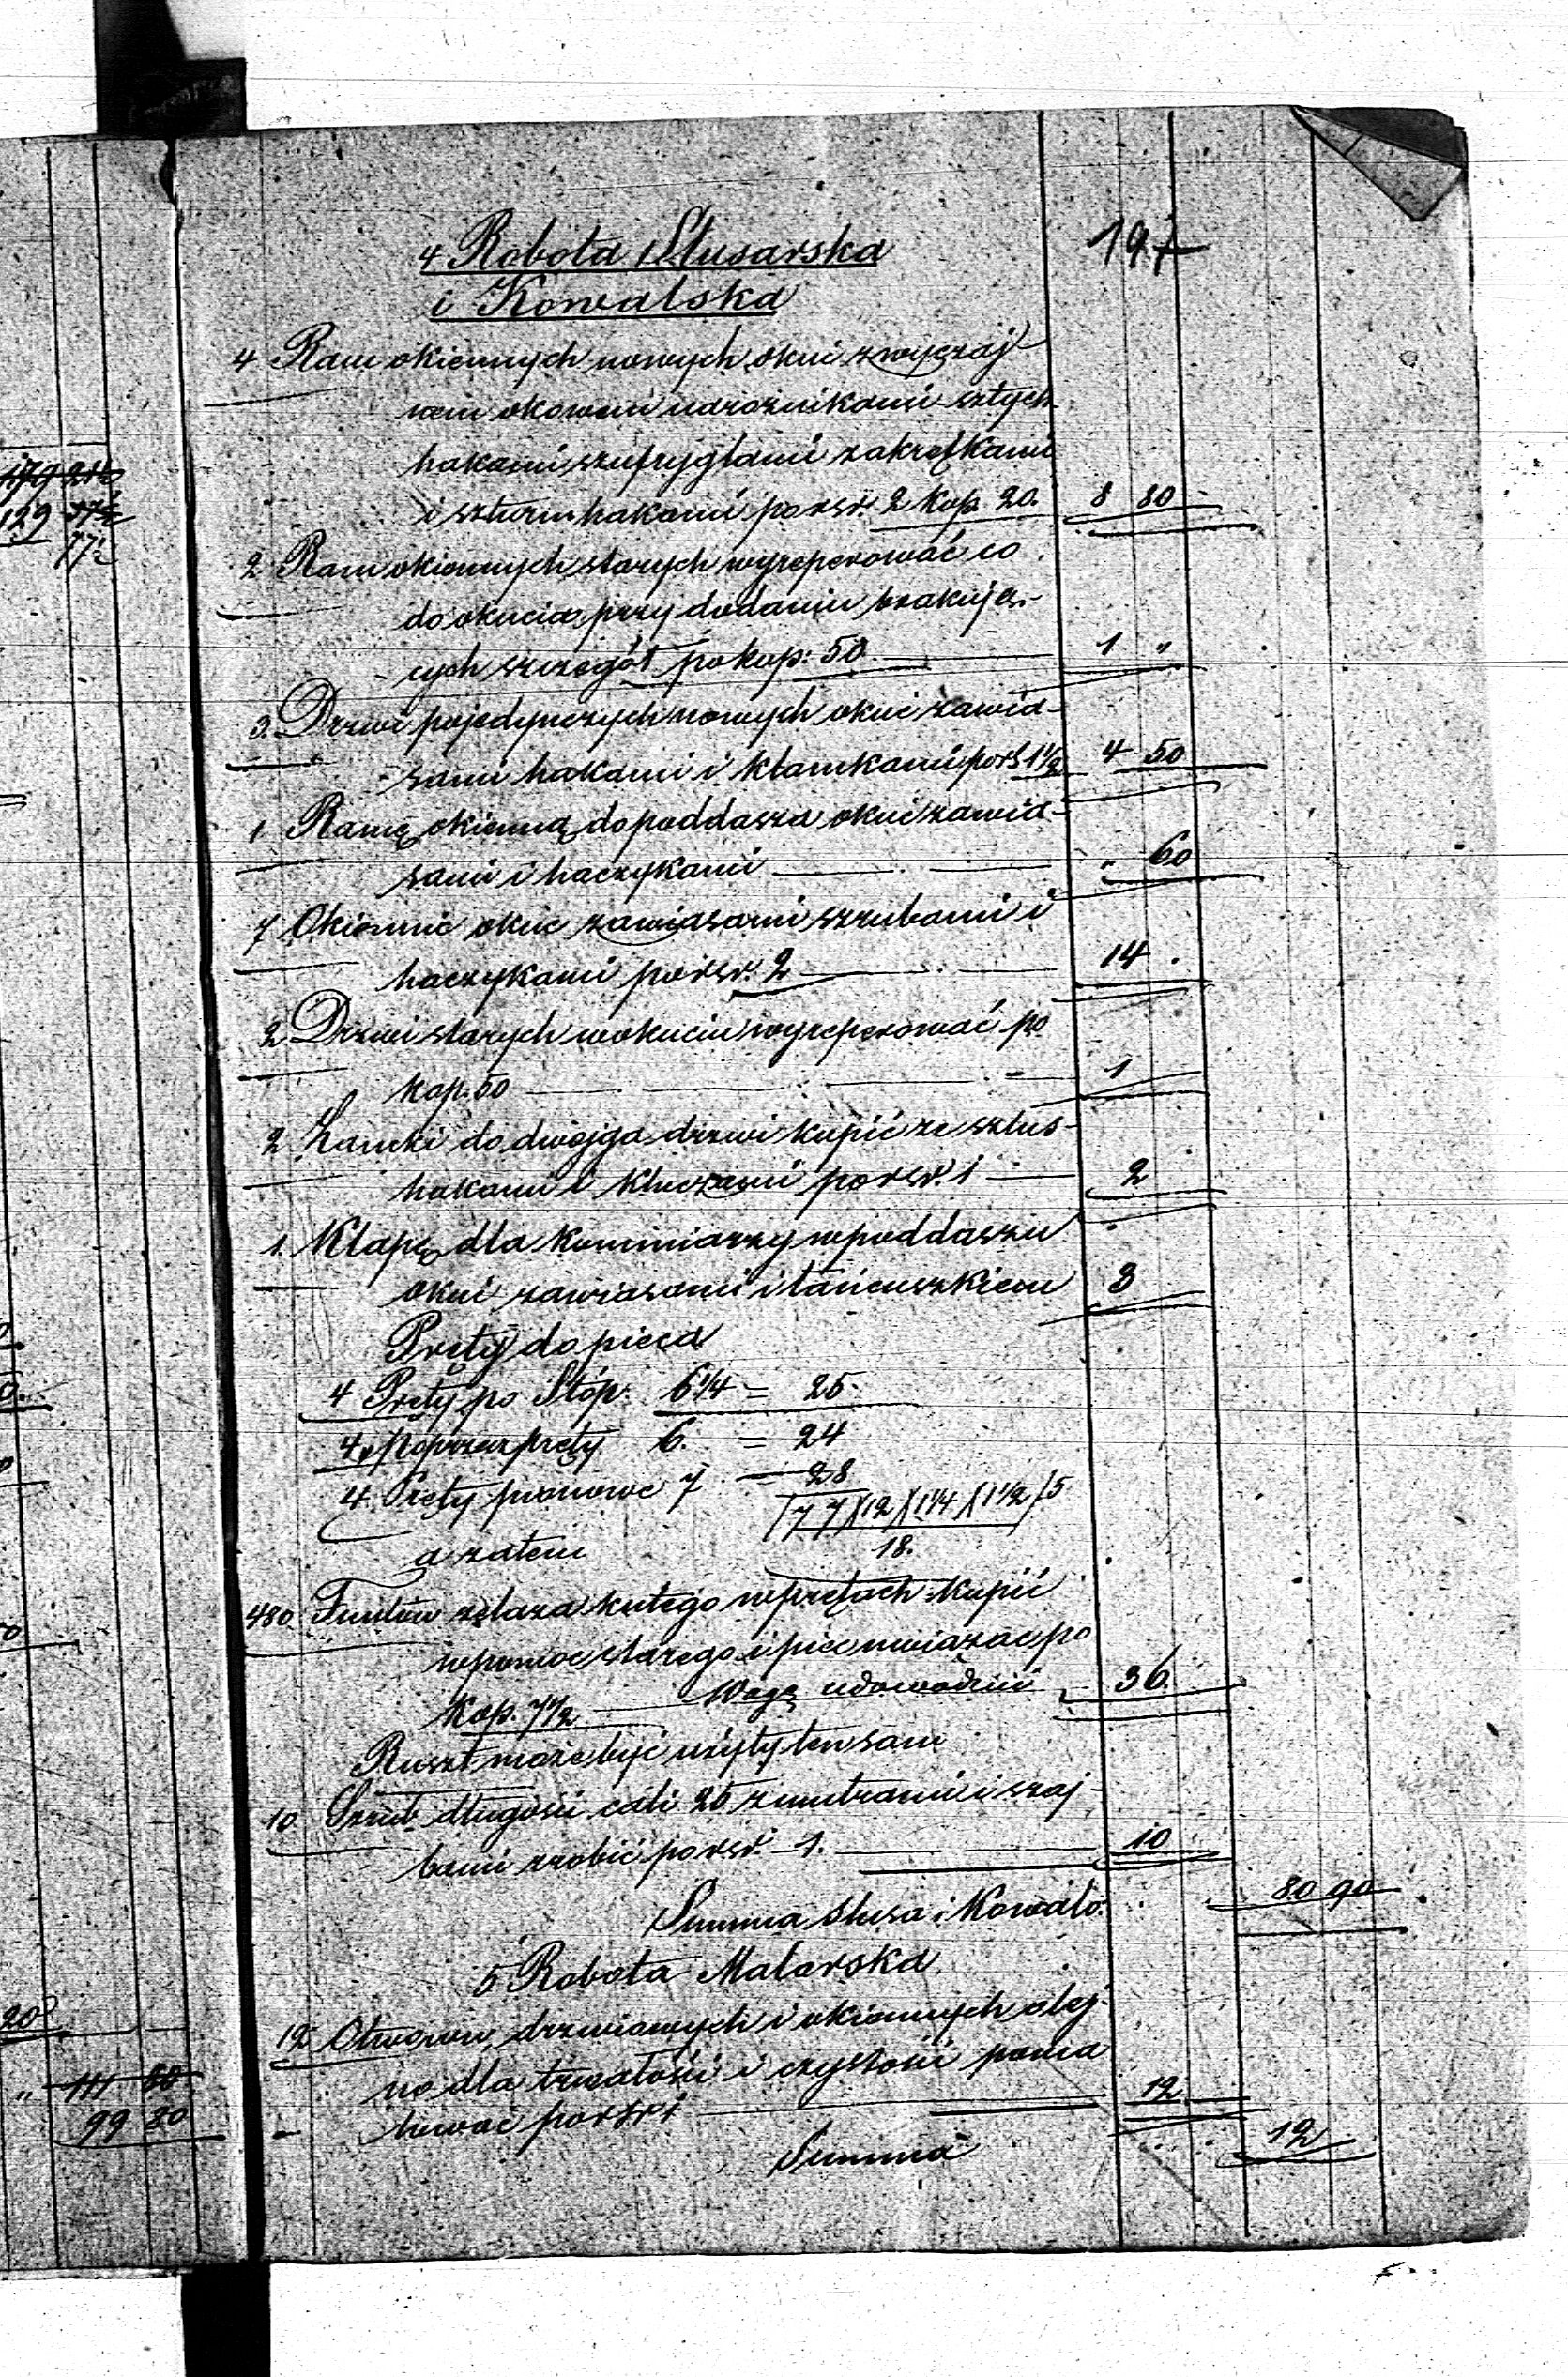 179 21½
129 77½
77½
20
" 111 60
99 80
197
4 Robota Slusarska
i Kowalska
4 Ram okiennych nowych okuć zwyczaj-
nem okowem narożnikami sztych-
hakami szufryglami zakrętkami
i szturmhakami po rsr. 2 kop. 20. 8 80
2 Ram okiennych starych wyreperować co
do okucia przy dodaniu brakują-
cych szczegół po kop: 50 1 "
3 Drzwi pojedynczych nowych okuć zawia-
sami hakami i klamkami po rs 1½ 4 50
1 Ramę okienną do poddasza okuć zawia-
sami i haczykami " 60
7 Okiennic okuć zawiasami szrubami i
haczykami po rsr. 2 14
2 Drzwi starych w okuciu wyreperować po
kop. 50 1
2 Zamki do dwojga drzwi kupić ze szlus-
hakami i kluczami po rsr. 1 2
1. Klapę dla kominiarzy w poddaszu
okuć zawiasami i łańcuszkiem 3
Pręty do pieca
4 Pręty po Stóp. 6¼ = 25
4 poprzez pręty 6. = 24
4 Pręty pionowe 7 — 28
(77)(12)(1¼)(1½)5
a zatem 18.
480 Funtów żelaza kutego w prętach kupić
w pomoc starego i piec związać po
Kop. 7½ Wagę udowodnić 36
Ruszt może być użyty ten sam
10 Szrub długości cali 25 z mutrami i szaj-
bami zrobić po rsr. 1. 10
Summa slusa i Kowalo. 80 90
5 Robota Malarska
12 Otworów drzwiowych i okiennych olej-
no dla trwałości i czystości poma-
lować po rsr 1 12
Summa 12